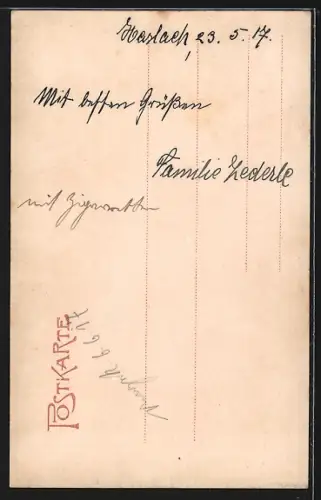 Haslach, 23. 5. 17.
Mit besten Grüßen
Familie Zederle
mit Zigaretten
POSTKARTE
6 6 17